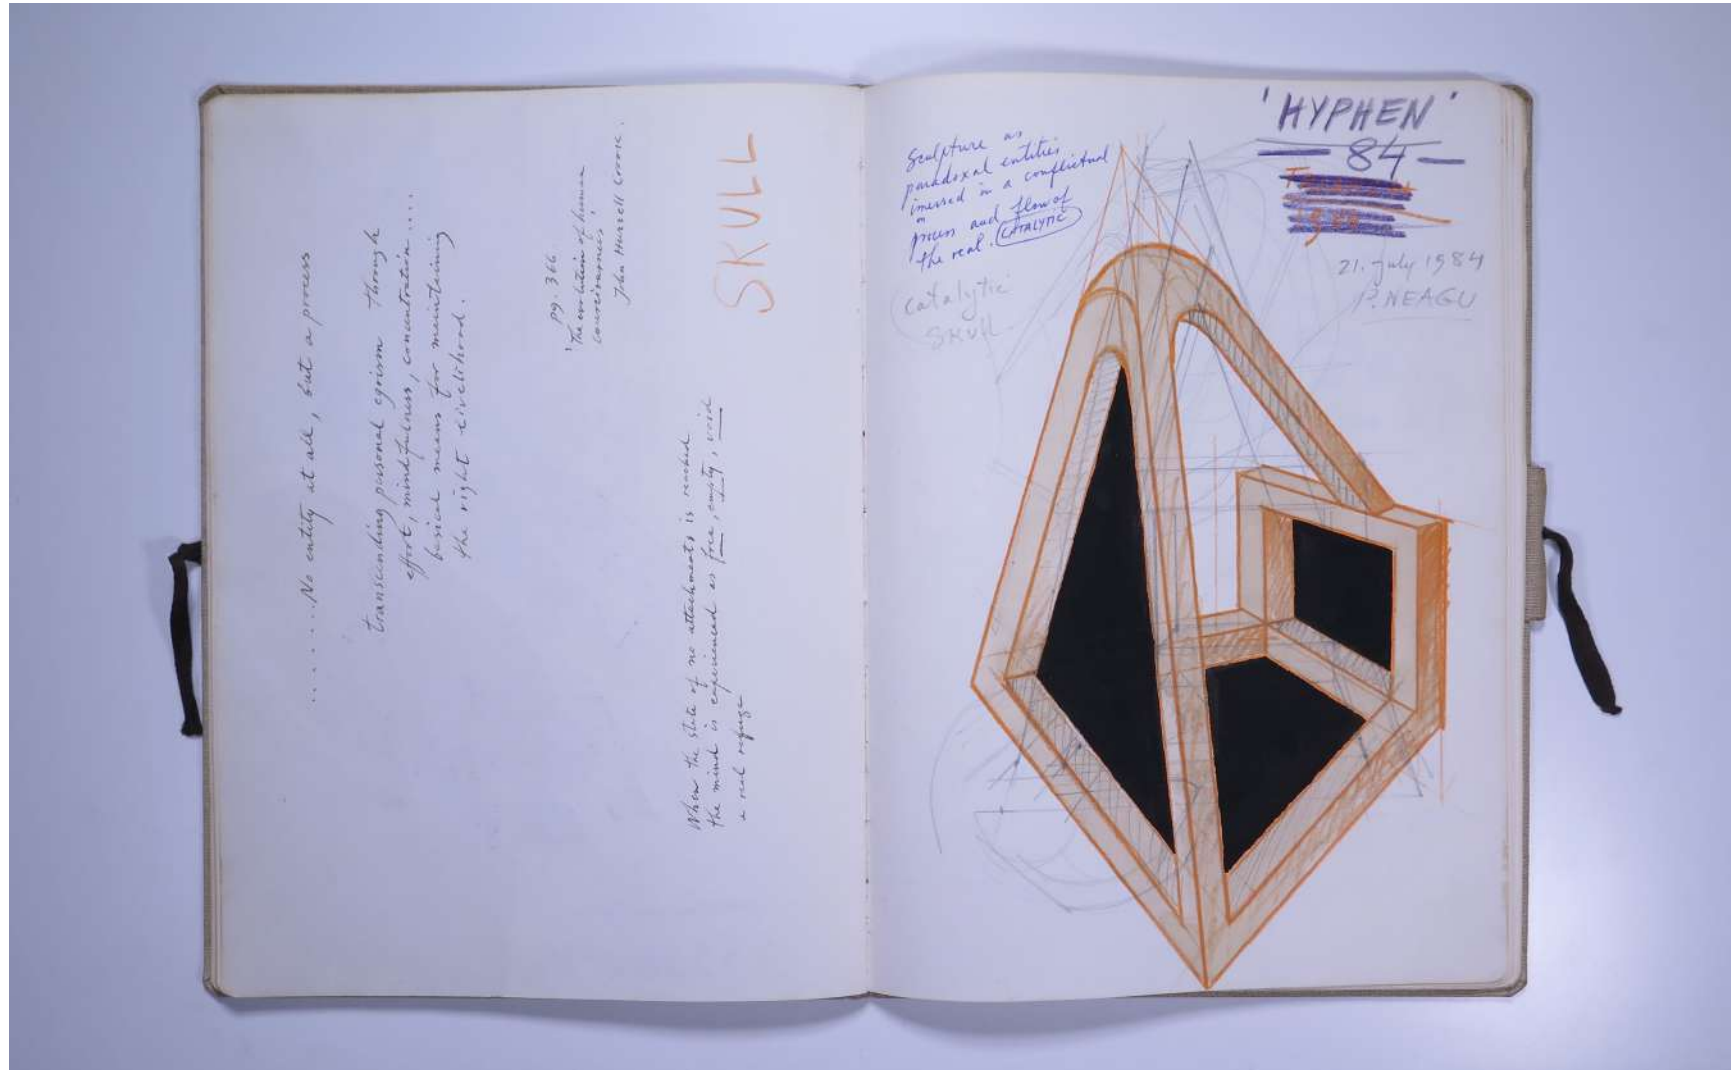 .......No entity at all, but a process
transcending personal egoism through
effort, mindfulness, concentration....
basical means for maintaining
the right livelihood.
pg. 366
'The evolution of human
consciousness'
John Hurrell Crook.
SKULL
When the state of no attachments is reached
the mind is experienced as free, empty, void
a real refuge
'HYPHEN'
- 84 -
1984
21. July 1984
P. NEAGU
Sculpture as
paradoxal entities
imersed in a conflictual
process and flow of
the real. CATALYTIC
catalytic
SKULL